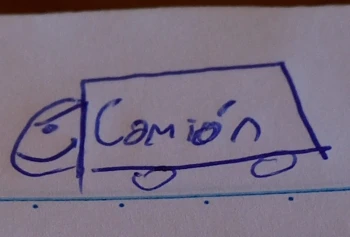 Camión